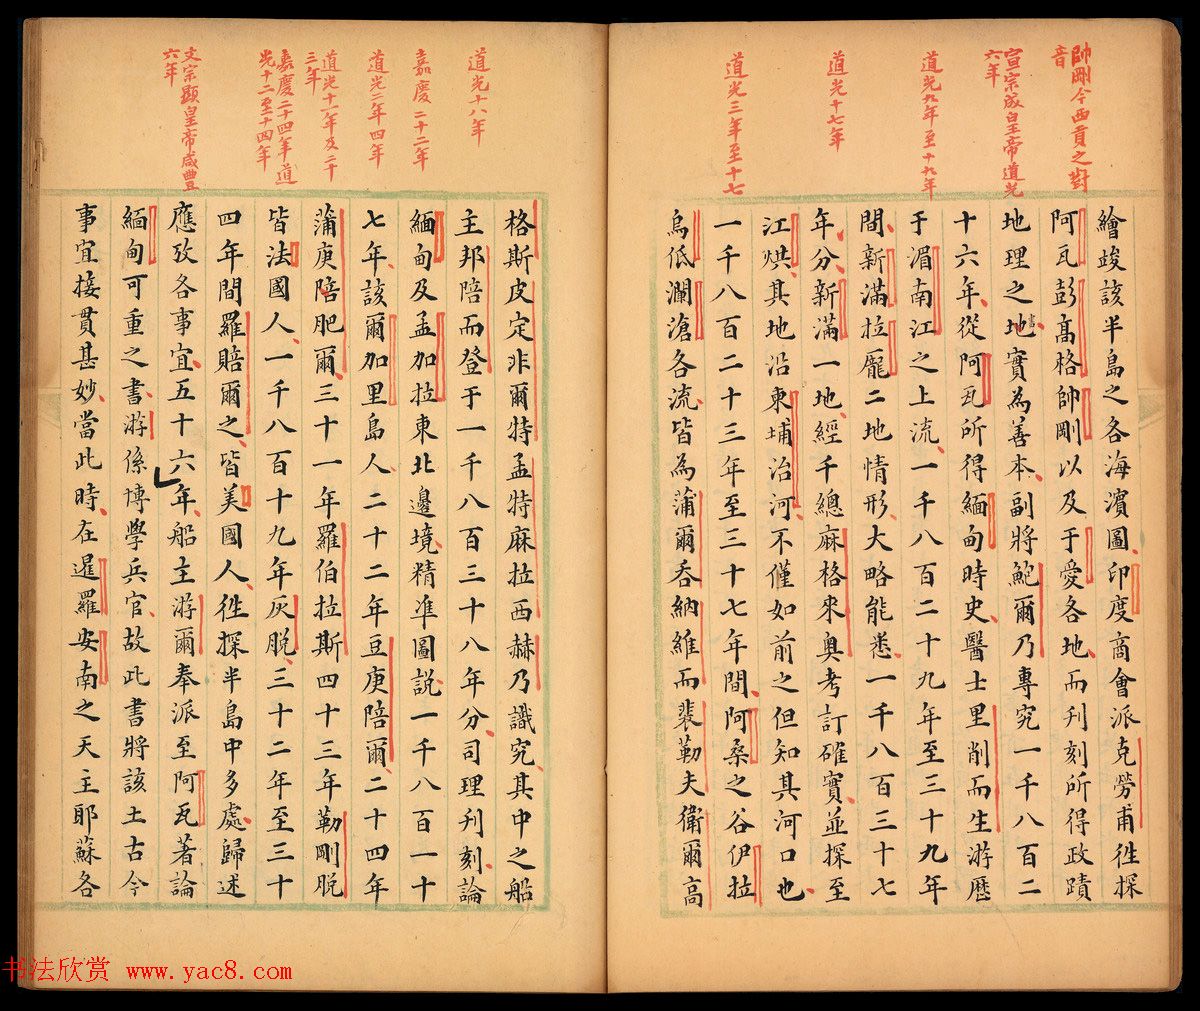 帥剛今西貢之對
音
宣宗成皇帝道光
六年
道光九年至十九年
道光十七年
道光三年至十七
繪竣該半島之各海濱圖印度商會派克勞甫往探
阿瓦彭髙格帥剛以及于愛各地而刊刻所得政蹟
地理之書地實為善本副將鮑爾乃專究一千八百二
十六年從阿瓦所得緬甸時史醫士里削而生游歷
于湄南江之上流一千八百二十九年至三十九年
間新滿拉龐二地情形大略能悉一千八百三十七
年分新滿一地經千總麻格來奥考訂確實並探至
江烘其地沿東埔冶河不僅如前之但知其河口也
一千八百二十三年至三十七年間阿桑之谷伊拉
烏低瀾滄各流皆為蒲爾吞納維而裴勒夫衛爾高
道光十八年
嘉慶二十二年
道光二年四年
道光十一年及二十
三年
嘉慶二十四年道
光十二至十四年
文宗顯皇帝咸豐
六年
格斯皮定非爾特孟特麻拉西赫乃識究其中之船
主邦陪而登于一千八百三十八年分司理刊刻論
緬甸及孟加拉東北邊境精準圖說一千八百一十
七年該爾加里島人二十二年豆庚陪爾二十四年
蒲庚陪肥爾三十一年羅伯拉斯四十三年勒剛脱
皆法國人一千八百十九年灰脱三十二年至三十
四年間羅賠爾之皆美國人往探半島中多處歸述
應攷各事宜五十六年船主游爾奉派至阿瓦著論
緬甸可重之書游係博學兵官故此書將該土古今
事宜接貫甚妙當此時在暹羅安南之天主耶蘇各
书法欣赏 www.yac8.com